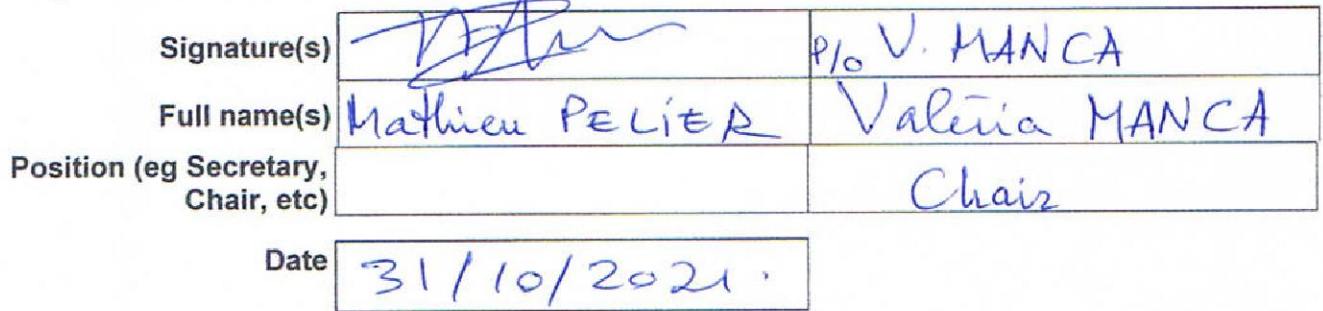 Signature(s) P/o V. MANCA
Full name(s) Mathieu PELiER Valéria MANCA
Position (eg Secretary,
Chair, etc) Chair
Date 31/10/2021.